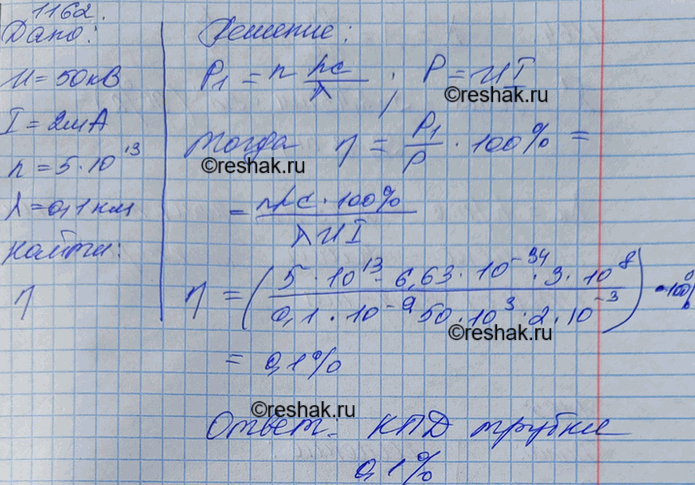 1162.
Дано:
U = 50кВ
I = 2мА
n = 5·10¹³
λ = 0,1 нм
Найти:
η
Решение:
P₁ = n hc/λ ; P = UI
©reshak.ru
Тогда η = P₁/P · 100% =
©reshak.ru
= nhc · 100% / λUI
η = (5·10¹³ · 6,63·10⁻³⁴ · 3·10⁸ / 0,1·10⁻⁹ 50·10³·2·10⁻³) · 100%
©reshak.ru
= 0,1%
©reshak.ru
Ответ: КПД трубки
0,1%